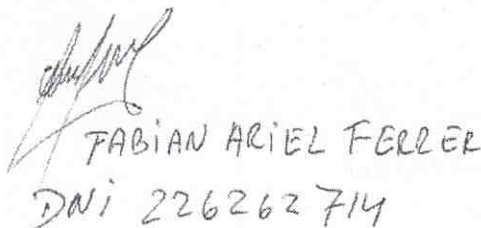 FABIAN ARIEL FERRER
DNI 226262714